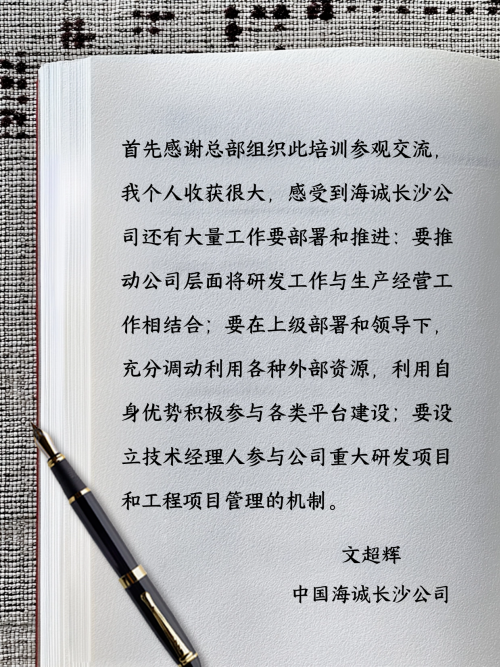 首先感谢总部组织此培训参观交流，
我个人收获很大，感受到海诚长沙公
司还有大量工作要部署和推进：要推
动公司层面将研发工作与生产经营工
作相结合；要在上级部署和领导下，
充分调动利用各种外部资源，利用自
身优势积极参与各类平台建设；要设
立技术经理人参与公司重大研发项目
和工程项目管理的机制。
文超辉
中国海诚长沙公司